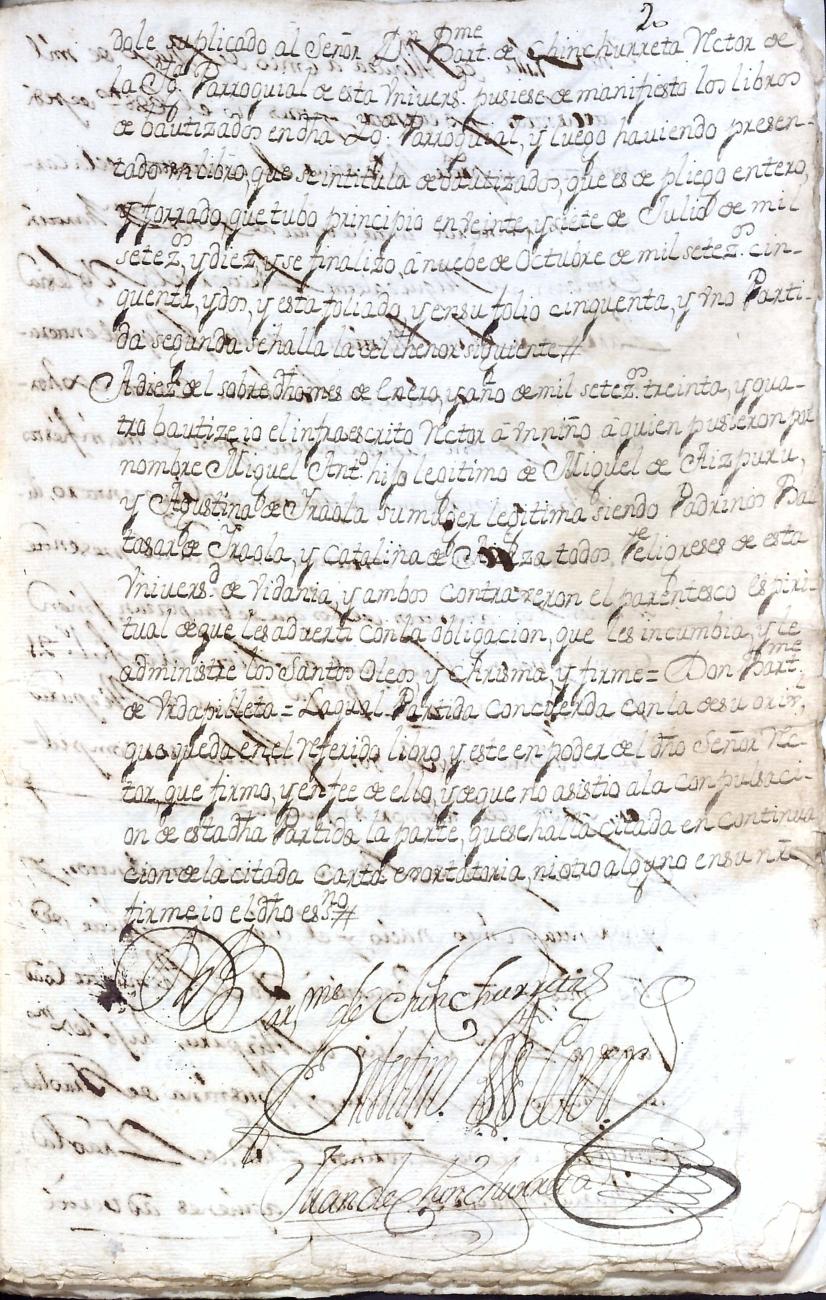 2
dole suplicado al Señor Dn Bartme de Chinchurreta Rector de
la Yga Parroquial de esta Universd pusiese de manifiesto los libros
de bautizados en dha Yga Parroquial, y luego haviendo presen-
tado un libro, que se intitula de bautizados, que es de pliego entero,
y forrado, que tubo principio en veinte, y siete de Julio de mil
setezos y diez, y se finalizo, á nuebe de Octubre de mil setezos cin-
quenta, y dos, y esta foliado, y en su folio cinquenta, y uno Parti-
da segunda se halla la del thenor siguiente #
A diez del sobre dho mes de Enero, y año de mil setezos treinta, y qua-
tro bautize io el infraescrito Rector á un niño á quien pusieron por
nombre Miguel Anto hijo legitimo de Miguel de Aizpuru,
y Agustina de Iraola su muger legitima siendo Padrinos Bal
tasar de Iraola, y Catalina de todos Feligreses de esta
Universd de Vidania, y ambos contrajeron el parentesco espiri-
tual de que les adverti con la obligacion, que les incumbia, y le
administre los Santos Oleos, y Chrisma, y firme = Don Bartme
de Vidapilleta = La qual Partida concuerda con la de su orixl
que queda en el referido libro, y este en poder del dho Señor Rec-
tor que firmo, y en fee de ello, y de que no asistio a la compulsaci-
on de esta dha Partida la parte, que se halla citada en continua
cion de la citada Carta exortatoria, ni otro alguno en su nre
firme io el dho esno #
Dn Barme de Chinchurreta
Juan de Chinchurreta